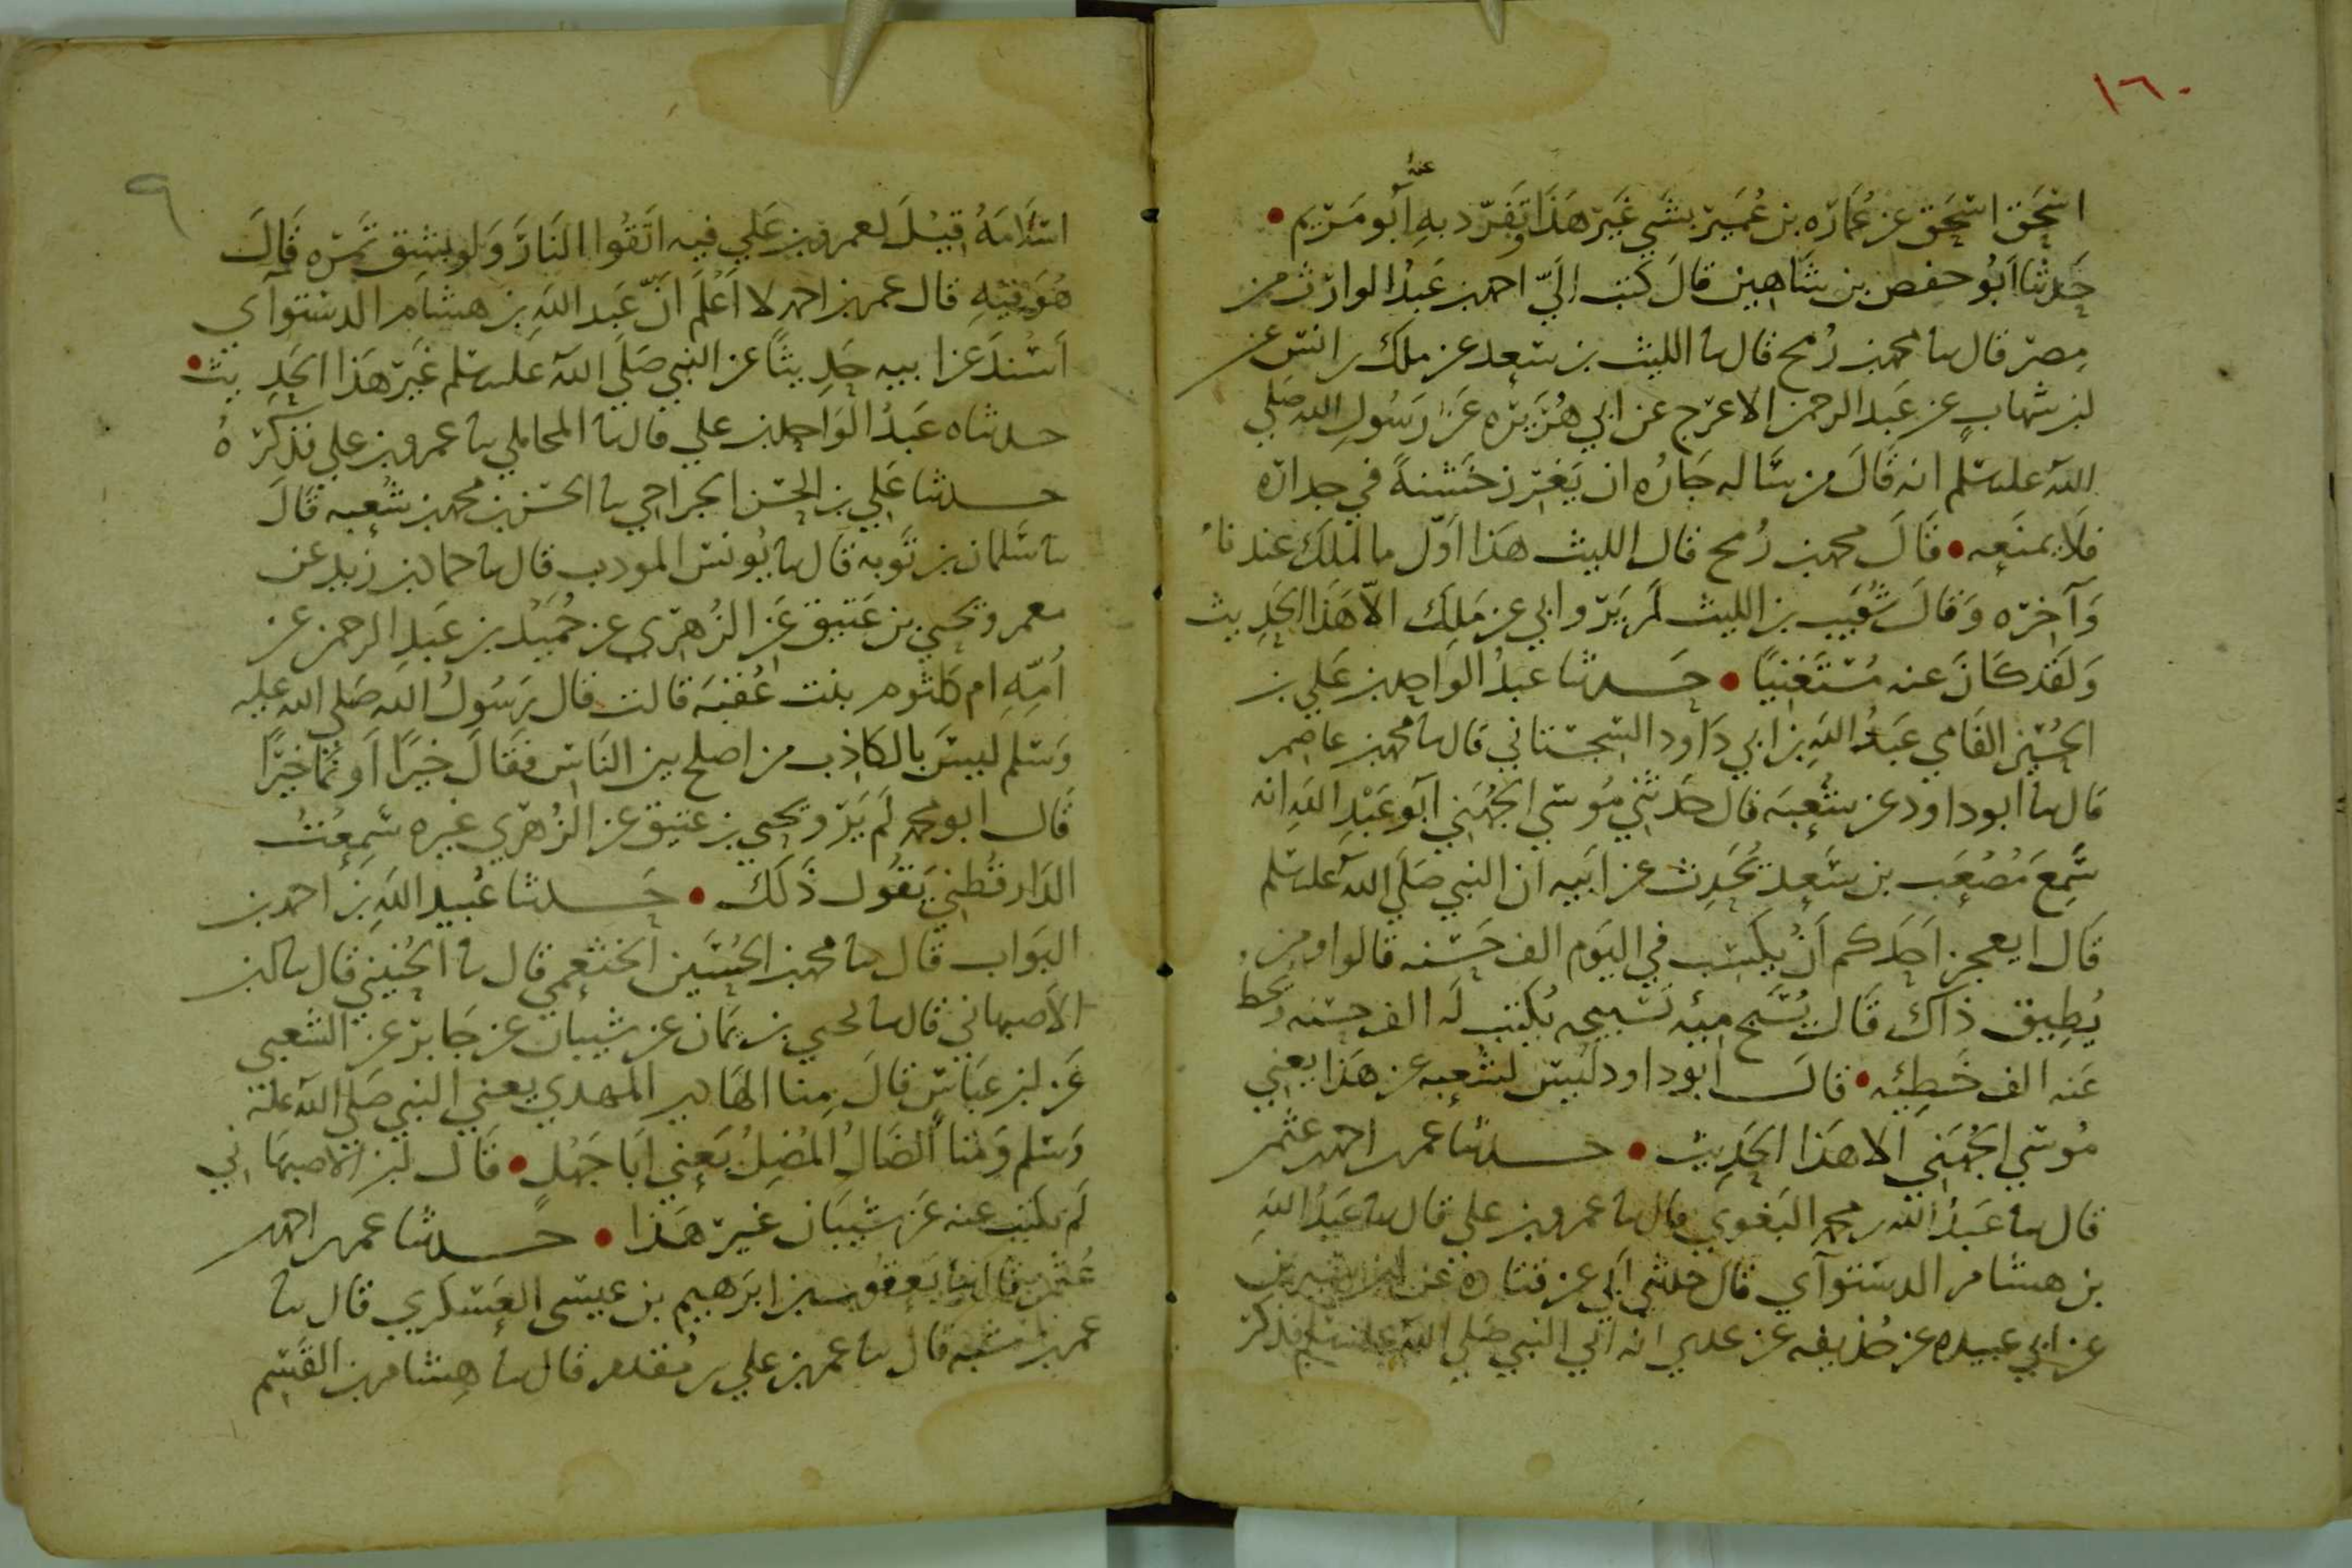 ١٦٠
اسحق اسحق عن عُمَارَه بن عُمَير بشي غَيرَ هَذَا وتَفرّد بهِ عنه ابو مَرْيم •
حَدثنا ابُو حفص بن شاهين قال كتب اليّ احمد بن عَبدُ الوارث من
مِصرَ قال نا محمد بن رُمح قال نا الليث بن سَعد عن ملك بن انس عن
ابن شهابٍ عن عَبد الرحمن الاعرَج عن ابي هُرَيرَه عَن رَسُولِ الله صَلي
الله عليه وسلم انه قالَ من سَاله جَارُه ان يَغرز خَشبةً في جدارَه
فلاَ يمنَعه • قَالَ محمد بن رُمح قال الليث هَذا اَوّل ما لملك عندنا
وَآخِرَه وَقَالَ شُعَيب بن الليث لَم يَروا ابي عن مَلِك الاّ هَذا الحَدِيث
وَلَقَد كَانَ عنه مُستَغنيًا • حَدثنا عَبدُ الوَاحد بن عَلي بن
الحُسَين الفَامي عَبدُ اللهِ بن ابي دَاود السجستاني قال نا محمد بن عاصم
قال نا ابو داود عن شُعبَه قال حَدثني مُوسَي الجُهَني ابو عَبْدِ اللهِ انه
سَمِعَ مُصْعَب بن سَعد يُحَدِث عن ابَيه ان النبي صَلي الله عليه وسلم
قَال ايعجز اَحَدكم اَنْ يكتسب في اليَوم الف حَسَنه قالوا ومن
يُطِيق ذاك قَال يُسَبح ميَه تَسبيحه يُكتب لَه الف حسنه ويحط
عَنه الف خَطِيئه • قالَ ابو داود ليسَ لشُعبه عن هَذا يعني
مُوسَي الجُهَني الا هَذا الحَدِيث • حدثنا عمر بن احمد بن عثمن
قال نا عَبدُ الله بن محمد البَغوي قال نا عمرو بن علي قال نا عَبدُ اللهِ
بن هشام الدستوآي قال حدثني اَبي عن قتادَه عَن ابن سيرين
عن ابي عبيده عن حُذيفه عن عدي انه اتي النبي صَلي الله عليه وسلم فذكر
٩
اسْلاَمَهُ قيْلَ لعمرو بن عَلي فيه اتَقُوا النَارَ وَلو بشق تَمرَه قَالَ
هُوَ فيْهِ قال عمر بن احمد لا اَعْلَم اَنّ عَبد اللهِ بن هشام الدستوآي
اَسْنَد عَن ابيه حَدِيثًا عن النبي صَلَي الله عليه وسلم غَيرَ هَذا الحَدِيث •
حدثناه عَبدُ الوَاحد بن علي قال نا المحاملي نا عمرو بن علي فذكرَهُ
حدثنا عَلي بن الحسن الجراحي نا الحسن بن محمد بن شُعبه قَالَ
نا سَلمان بن تَوبه قال نا يُونس المودب قال نا حماد بن زَيد عن
معمر ويحيي بن عَتيق عَن الزُهرَي عن حُمَيْد بن عَبدِ الرحمن عن
اُمِّهِ ام كلثوم بنت عُقبَه قالت قال رَسُولُ الله صَلي الله عليه
وَسَلم ليسَ بالكاذِب من اصلح بين النَاس فقَالَ خَيرًا اَو نَمَا خَيرًا
قَال ابو محمد لَم يَرو يحيي بن عتيق عن الزُهرَي غيره سَمِعْتُ
الدَارقطني يَقُول ذَلَك • حَدثنا عُبيد اللهِ بن احمد بن
البَواب قال نا محمد بن الحُسَين الخثعمي قال نا الحُنيني قال نا ابن
الاصبهاني قال نا يحيي بن يمَان عن شيبان عن جَابر عن الشعبي
عَن ابن عبَاس قالَ مِنا الهَادي المَهدي يعني النبي صَلي الله عليه
وَسَلم وَمنا الضَالُ المُضِلُ يَعني ابَا جَهْل • قَال ابن الاصبهَاني
لَم نكتب عنه عَن شيبَان غيرَ هَذا • حدثنا عمر بن احمد
عُثمن قال نا يَعقوب بن ابرَهيم بن عيسَى العَسكري قال نا
عمر بن شَبه قال نا عمر بن علي بن مُقدم قال نا هِشام بن القَسِم